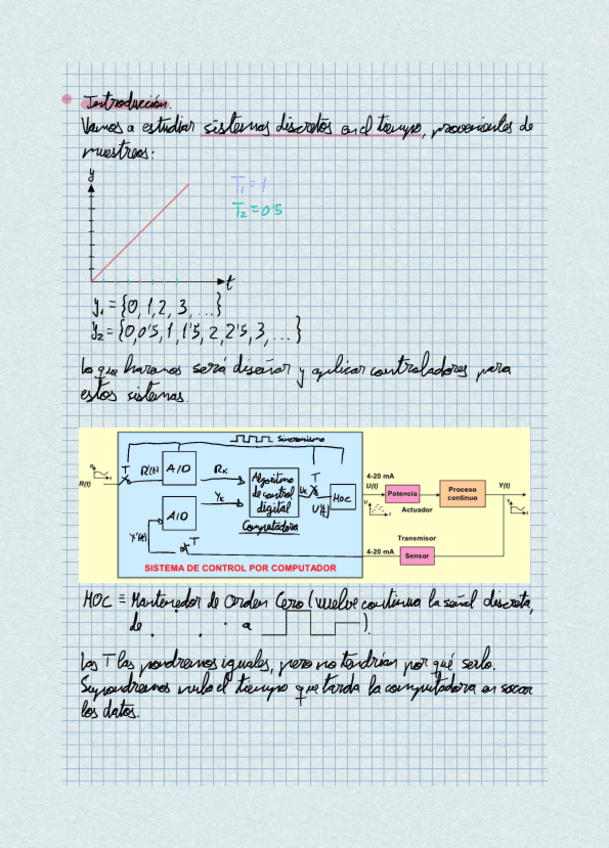 Introducción.
Vamos a estudiar sistemas discretos en el tiempo, provenientes de
muestreos:
y
T₁ = 1
T₂ = 0'5
t
y₁ = {0, 1, 2, 3, ...}
y₂ = {0, 0'5, 1, 1'5, 2, 2'5, 3, ...}
Lo que haremos será diseñar y aplicar controladores para
estos sistemas.
Sincronismo
T R'(t) A/D Rk T
R(t)
Algoritmo
de control
digital
Uk
HOC
U'(t)
Yk
A/D
Computadora
Y'(t)
T
4-20 mA
U(t)
Potencia
Actuador
Proceso
continuo
Y(t)
Transmisor
4-20 mA
Sensor
SISTEMA DE CONTROL POR COMPUTADOR
HOC ≡ Mantenedor de Orden Cero (vuelve continua la señal discreta,
de a ).
Las T las pondremos iguales, pero no tendrían por qué serlo.
Supondremos nulo el tiempo que tarda la computadora en sacar
los datos.